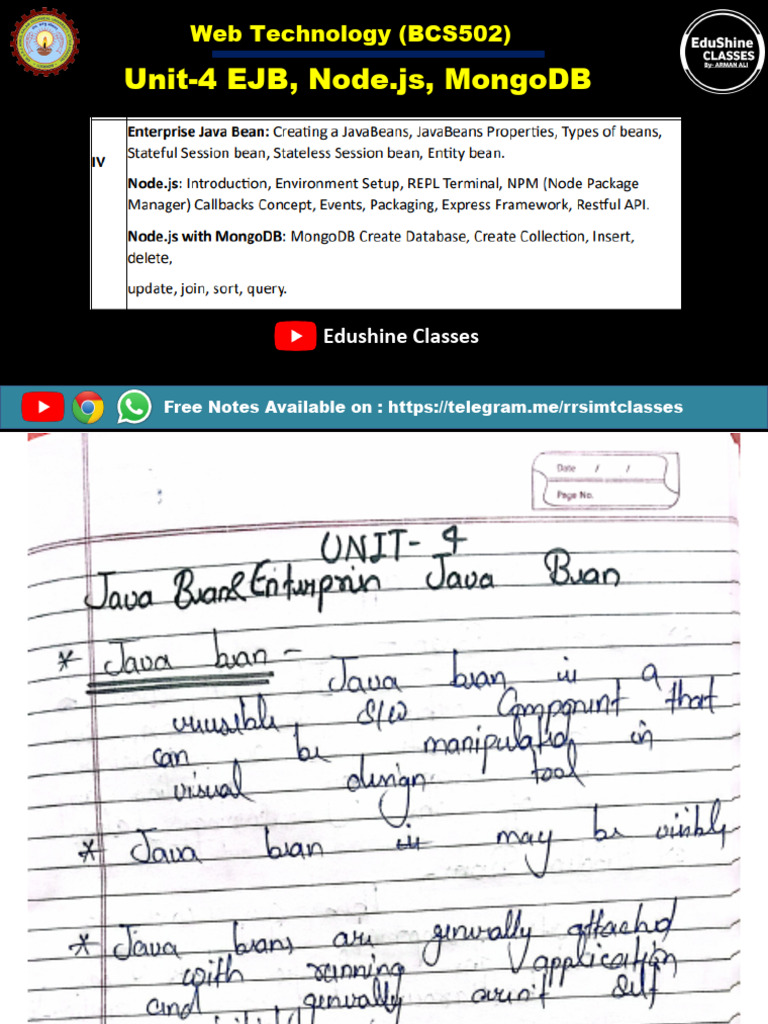 Web Technology (BCS502)
Unit-4 EJB, Node.js, MongoDB
EduShine
CLASSES
By- ARMAN ALI
IV
Enterprise Java Bean: Creating a JavaBeans, JavaBeans Properties, Types of beans,
Stateful Session bean, Stateless Session bean, Entity bean.
Node.js: Introduction, Environment Setup, REPL Terminal, NPM (Node Package
Manager) Callbacks Concept, Events, Packaging, Express Framework, Restful API.
Node.js with MongoDB: MongoDB Create Database, Create Collection, Insert,
delete,
update, join, sort, query.
Edushine Classes
Free Notes Available on : https://telegram.me/rrsimtclasses
Date / /
Page No.
UNIT- 4
Java Bean & Enterprise Java Bean
* Java bean -
Java bean is a
reusable S/W Component that
can be manipulated in
visual design tool
* Java bean may be visible
* Java beans are generally attached
with running application
and generally aren't self